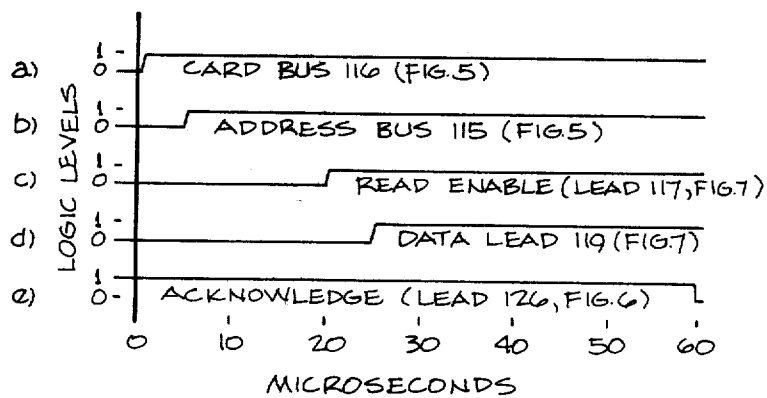 LOGIC LEVELS
a) 1 0 CARD BUS 116 (FIG.5)
b) 1 0 ADDRESS BUS 115 (FIG.5)
c) 1 0 READ ENABLE (LEAD 117, FIG.7)
d) 1 0 DATA LEAD 119 (FIG.7)
e) 1 0 ACKNOWLEDGE (LEAD 126, FIG.6)
0 10 20 30 40 50 60
MICROSECONDS